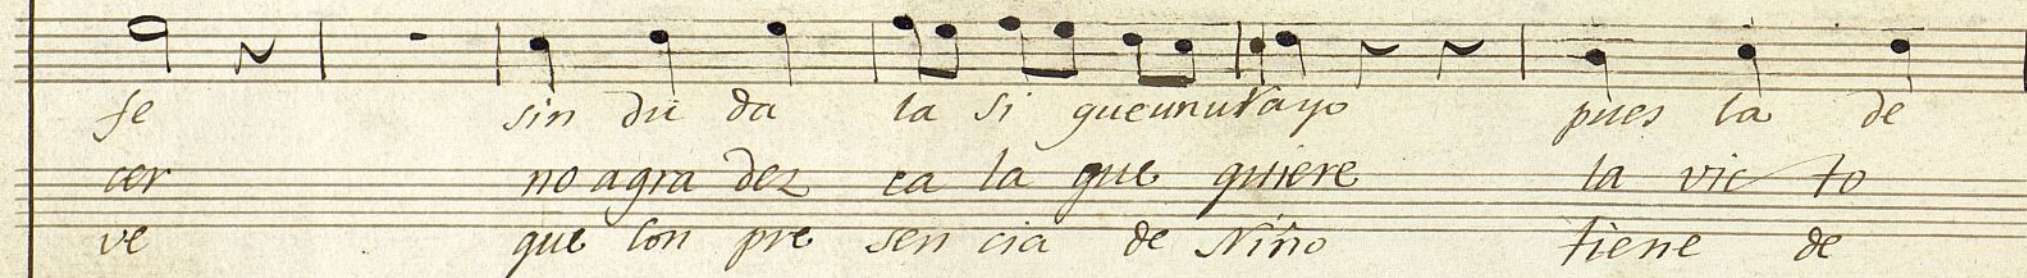 fe sin du da la si gueunuRayo pues la de
cer no agra dez ca la que quiere la vic to
ve que con pre sen cia de Niño tiene de